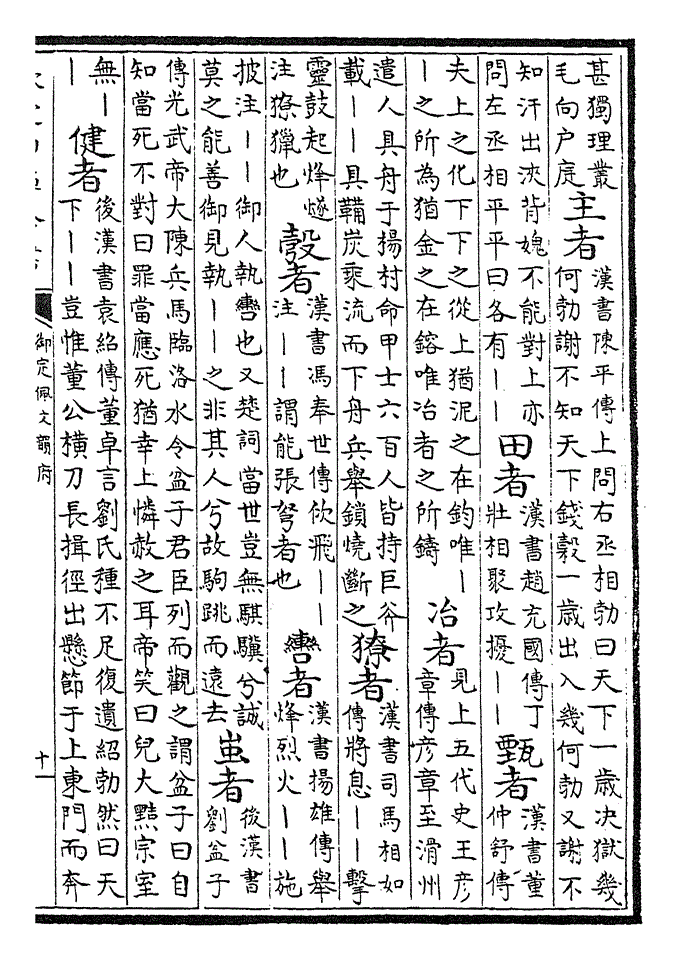 甚獨理叢
毛向户庭
主者
漢書陳平傳上問右丞相勃曰天下一歲決獄幾
何勃謝不知天下錢穀一歲出入幾何勃又謝不
知汗出浹背媿不能對上亦
問左丞相平平曰各有丨丨
田者
漢書趙充國傳丁
壯相聚攻擾丨丨
甄者
漢書董
仲舒傳
夫上之化下下之從上猶泥之在鈞唯丨
丨之所為猶金之在鎔唯冶者之所鑄
冶者
見上五代史王彦
章傳彦章至滑州
遣人具舟于揚村命甲士六百人皆持巨斧
載丨丨具鞴炭乘流而下舟兵舉鎖燒斷之
獠者
漢書司馬相如
傳將息丨丨擊
靈鼓起烽燧
注獠獵也
彀者
漢書馮奉世傳佽飛丨丨
注丨丨謂能張弩者也
轡者
漢書揚雄傳舉
烽烈火丨丨施
披注丨丨御人執轡也又楚詞當世豈無騏驥兮誠
莫之能善御見執丨丨之非其人兮故駒跳而遠去
蚩者
後漢書
劉盆子
傳光武帝大陳兵馬臨洛水令盆子君臣列而觀之謂盆子曰自
知當死不對曰罪當應死猶幸上憐赦之耳帝笑曰兒大黠宗室
無丨
丨
健者
後漢書袁紹傳董卓言劉氏種不足復遺紹勃然曰天
下丨丨豈惟董公橫刀長揖徑出懸節于上東門而奔
御定佩文韻府
十一